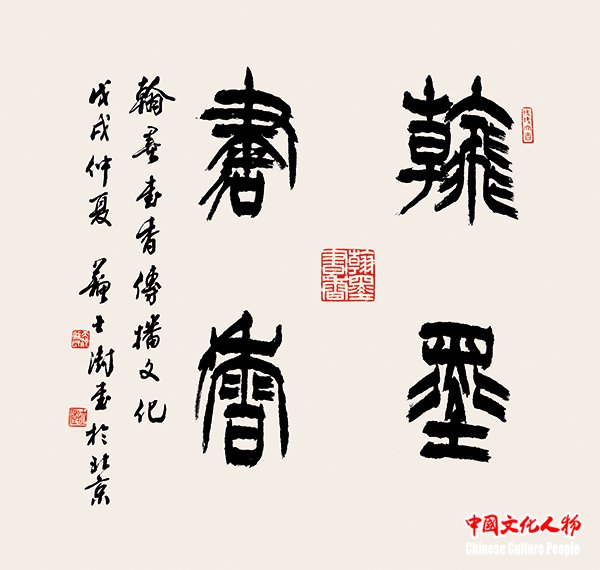 翰墨
書香
翰墨書香傳播文化
戊戌仲夏蘇士澍書於北京
翰墨書香
中國文化人物
Chinese Culture People